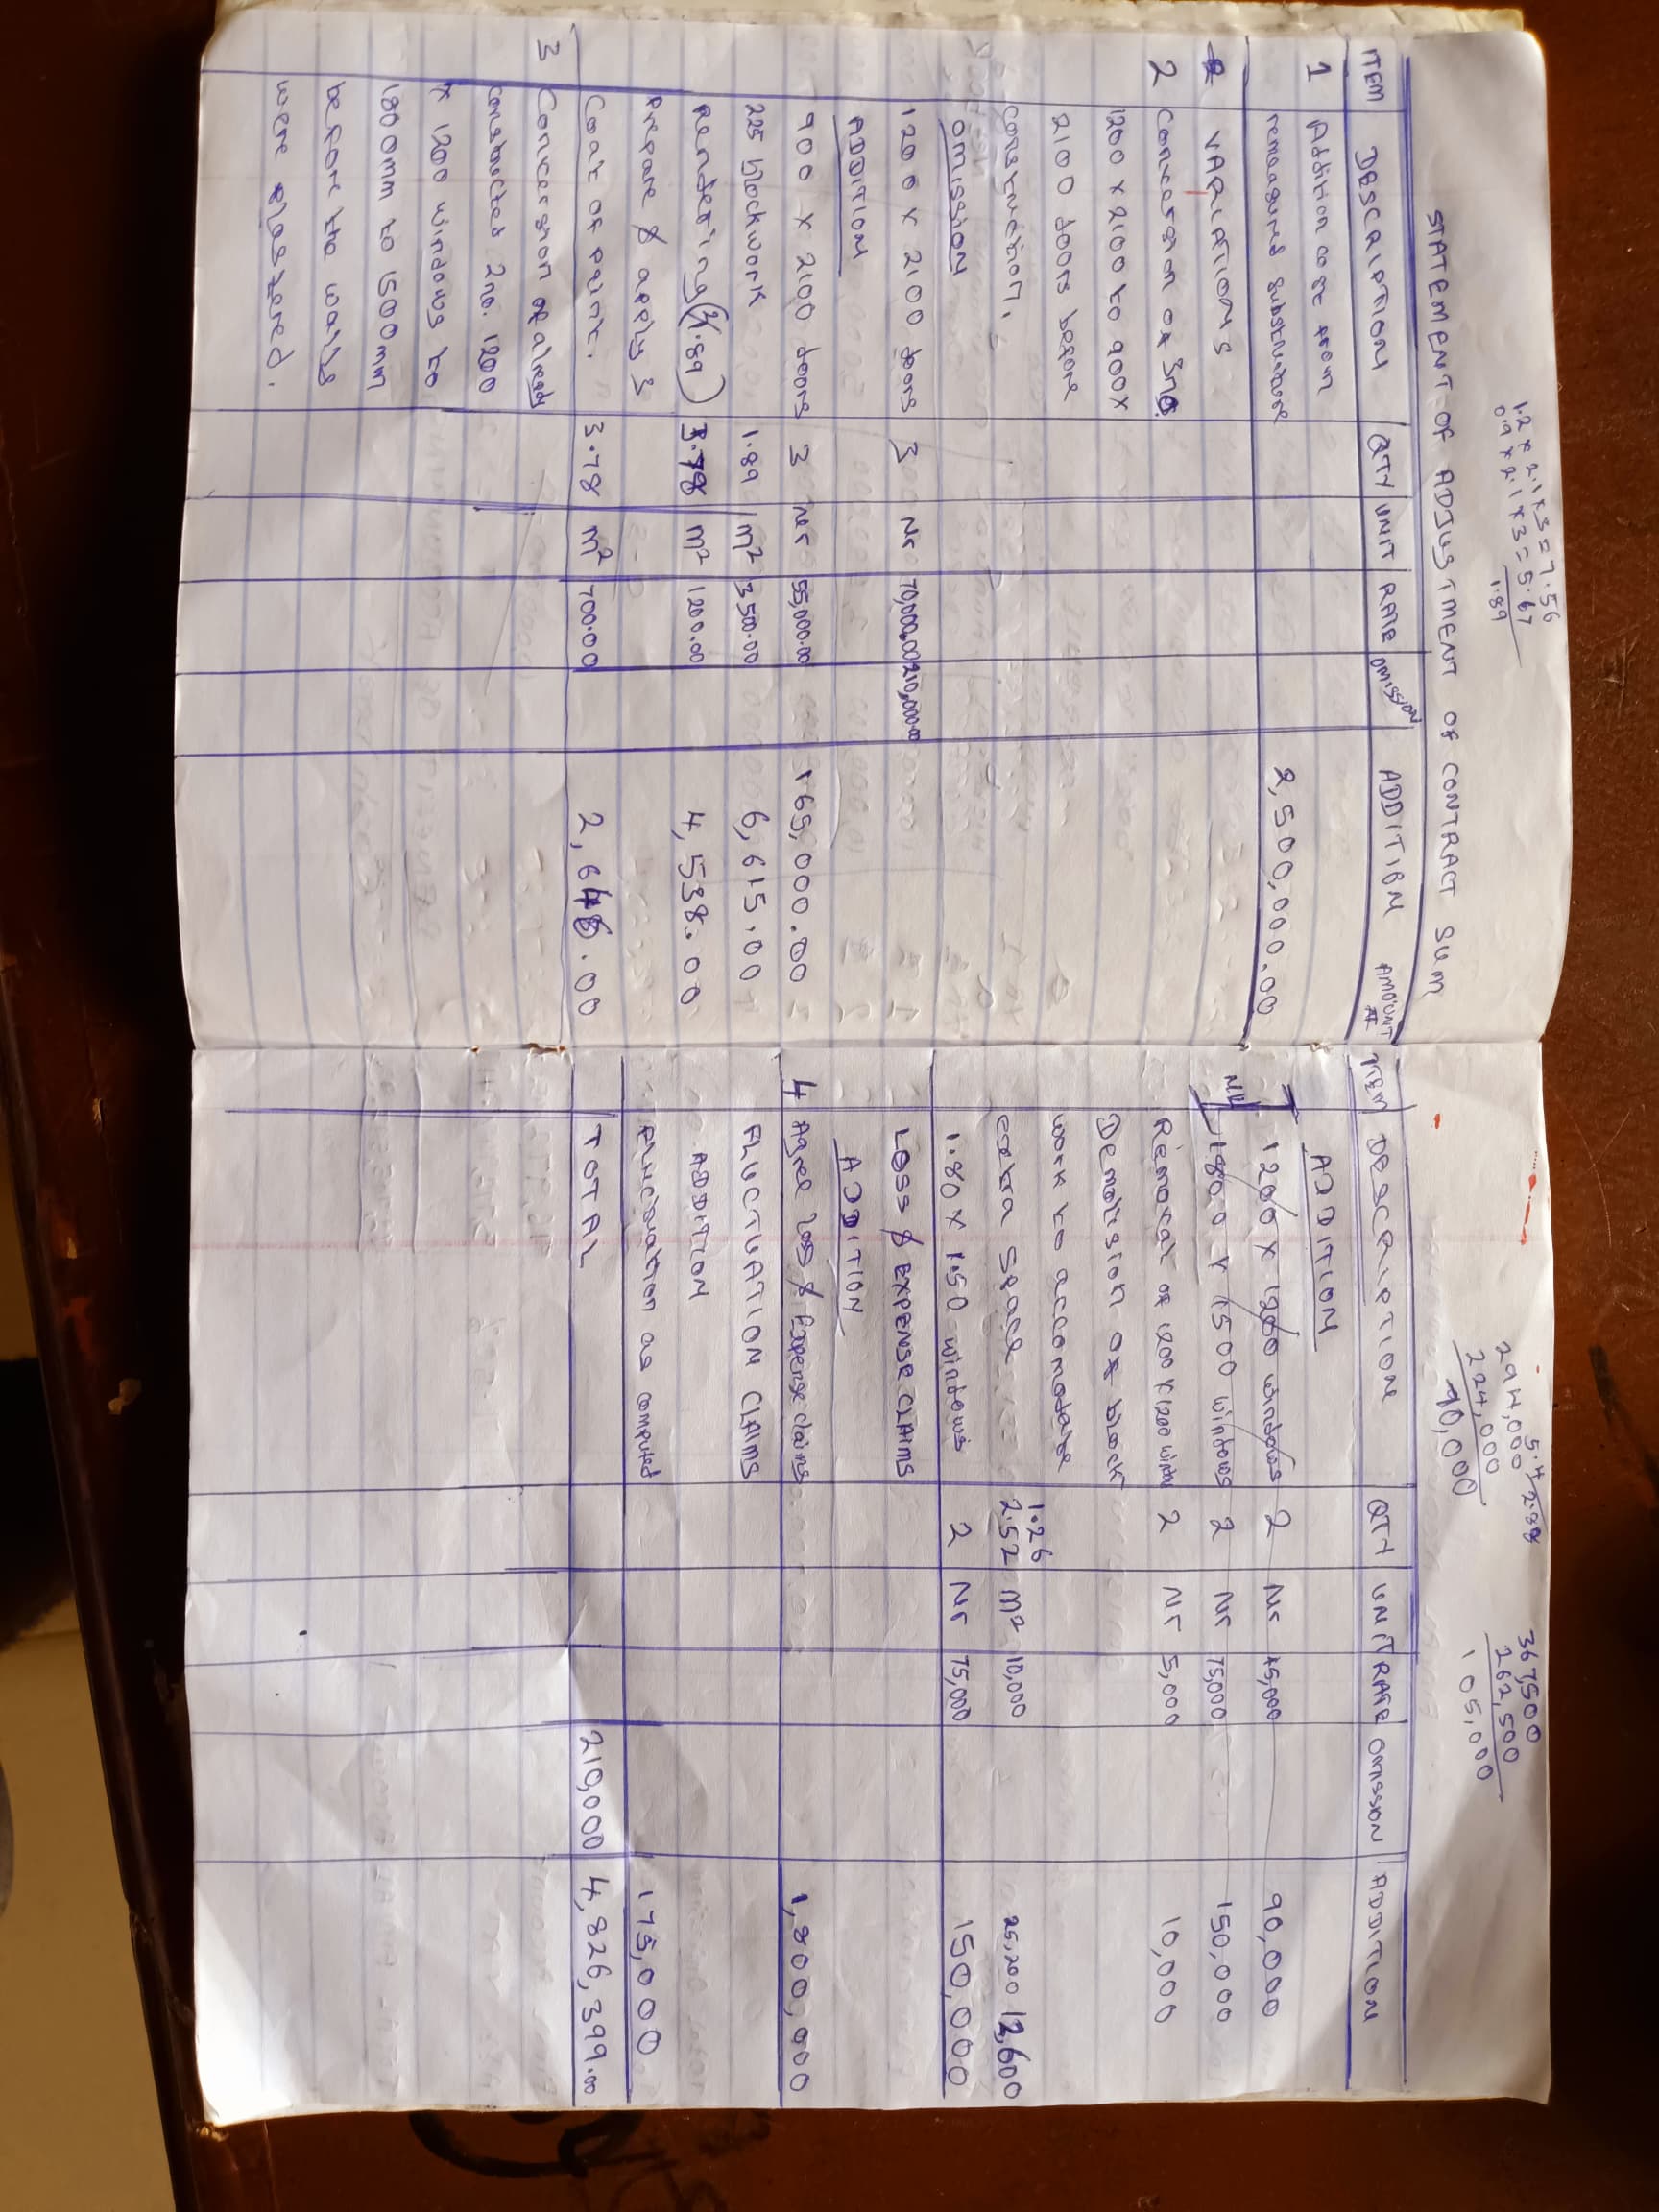 1.2 x 2.1 x 3 = 7.56
0.9 x 2.1 x 3 = 5.67
1.89
STATEMENT OF ADJUSTMENT OF CONTRACT SUM
ITEM DESCRIPTION QTY UNIT RATE OMISSION ADDITION AMOUNT ₦
1 Addition cost from
remeasured substructure 2,500,000.00
2 VARIATIONS
2 Conversion of 3no.
1200 x 2100 to 900x
2100 doors before
construction.
OMISSION
1200 x 2100 doors 3 Nr 70,000.00 210,000.00
ADDITION
900 x 2100 doors 3 Nr 55,000.00 165,000.00
225 blockwork 1.89 m² 3500.00 6,615.00
Rendering (2/1.89) 3.78 m² 1200.00 4,538.00
Prepare & apply 3
Coat of paint. 3.78 m² 700.00 2,646.00
3 Conversion of already
constructed 2no. 1200
x 1200 windows to
1800mm to 1500mm
before the walls
were plastered.
5.4 / 2.38
294,000
224,000
90,000
367,500
262,500
105,000
ITEM DESCRIPTION QTY UNIT RATE OMISSION ADDITION
ADDITION
1200 x 1200 windows 2 Nr 45,000 90,000
1800 x 1500 windows 2 Nr 75,000 150,000
Removal of 1200 x 1200 window 2 Nr 5,000 10,000
Demolision of block
work to accomodate
1.26
extra space 2.52 m² 10,000 25,200 12,600
1.80 x 1.50 windows 2 Nr 75,000 150,000
LOSS & EXPENSE CLAIMS
ADDITION
4 Agree loss & Expense claims 1,800,000
FLUCTUATION CLAIMS
ADDITION
Fluctuation as computed 175,000
TOTAL 210,000 4,826,399.00